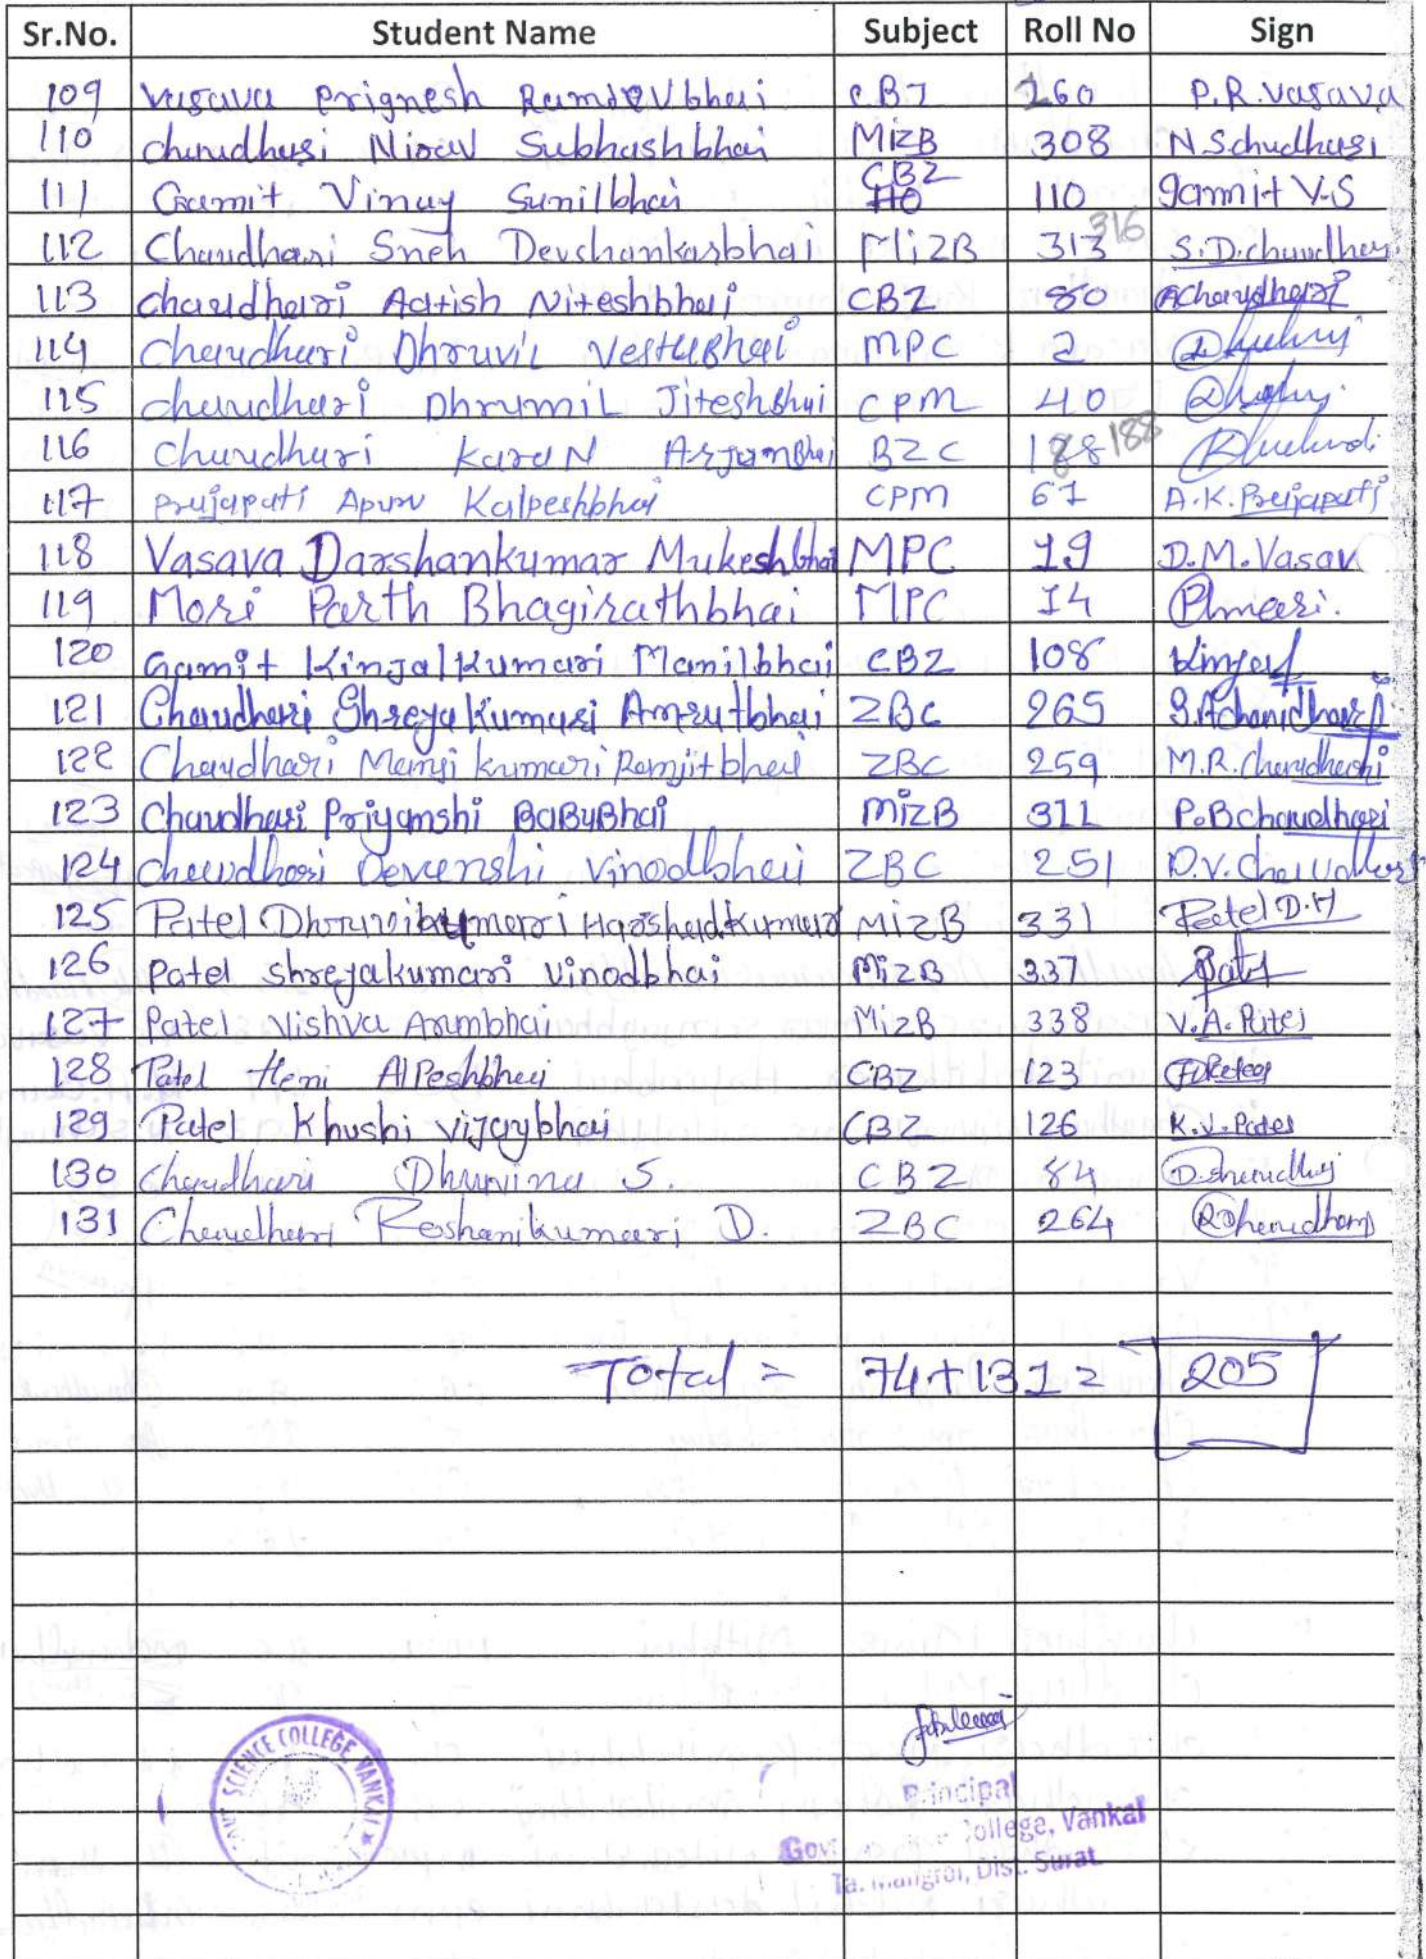 Sr.No. Student Name Subject Roll No Sign
109 Vasava Prignesh Ramdevbhai CBZ 160 P.R.Vasava
110 Chaudhari Nirav Subhashbhai MiZB 308 N.S.chudhari
111 Gamit Vinay Sunilbhai CBZ 110 gammit V.S
112 Chaudhari Sneh Devchankarbhai MiZB 313 316 S.D.chaudhari
113 Chaudhari Aatish Niteshbhai CBZ 80 AChaudhari
114 Chaudhari Dhruvil VestuBhai MPC 2
115 chaudhari Dhrumil Jiteshbhai CPM 40
116 Chaudhari KaraN ArjumBhai BZC 188 188
117 Prajapati Apurv Kalpeshbhai CPM 67 A.K.Prajapati
118 Vasava Darshankumar Mukeshbhai MPC 19 D.M.Vasav
119 Mori Parth Bhagirathbhai MPC 14 Pmori.
120 Gamit Kinjalkumari Manilbhai CBZ 108 Kinjal
121 Chaudhari Shreyakumari Amrutbhai ZBC 265 S.AChaudhari
122 Chaudhari Mansi kumari Ramjitbhai ZBC 259 M.R.Chaudhari
123 Chaudhari Priyamshi BaBuBhai MiZB 311 P.Bchaudhari
124 Chaudhari Devenshi Vinodbhai ZBC 251 D.V.Chaudhari
125 Patel Dhruvikumari Harshadkumar MiZB 331 Patel D.H
126 Patel shreyakumari Vinodbhai MiZB 337
127 Patel Vishva Arumbhai MiZB 338 V.A.Patel
128 Patel Heni AlPeshbhai CBZ 123
129 Patel Khushi Vijaybhai CBZ 126 K.V.Patel
130 Chaudhari Dhruvina S. CBZ 84
131 Chaudhari Roshanikumari D. ZBC 264
Total = 74+131= 205
SCIENCE COLLEGE VANKAL
Principal
College, Vankal
Ta. Mangrol, Dist. Surat